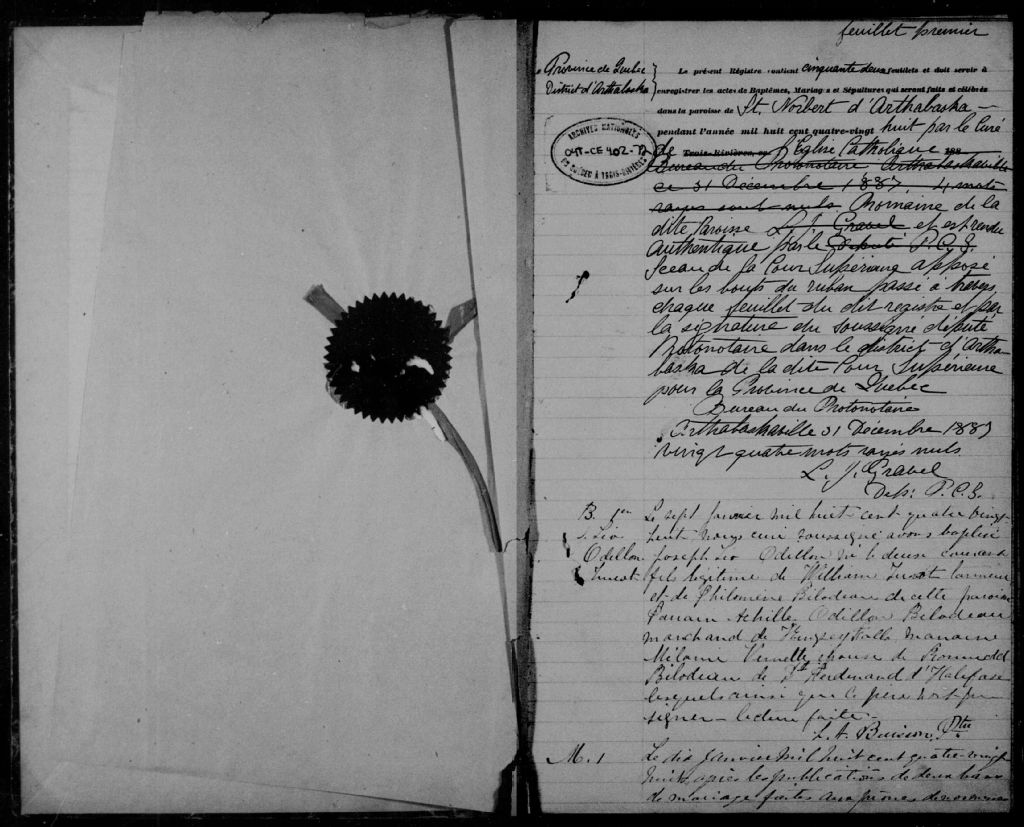 feuillet premier
Province de Quebec
District d'Arthabaska
Le présent Régistre contient cinquante deux feuillets et doit servir à
enregistrer les actes de Baptêmes, Mariages et Sépultures qui seront faits et célébrés
dans la paroisse de St. Norbert d'Arthabaska —
pendant l'année mil huit cent quatre-vingt huit par le Curé
de Trois-Rivières, ce l'Eglise Catholique 188
ARCHIVES NATIONALES
04T-CE 402-
DU QUÉBEC À TROIS-RIVIÈRES
Bureau du Protonotaire Arthabaskaville
ce 31 Décembre 1887, 4 mots
rayés sont nuls. Romaine de la
dite Paroisse L. J. Gravel et est rendu
Authentique par le Député P.C.S.
Sceau de la Cour Supérieure apposé
sur les bouts du ruban passé à travers
chaque feuillet du dit registre et par
la signature du soussigné député
Protonotaire dans le district d'Artha-
baska de la dite Cour Supérieure
pour la Province de Quebec
Bureau du Protonotaire
Arthabaskaville 31 Décembre 1887
Vingt quatre mots rayés nuls
L. J. Gravel
Dep: P.C.S.
B. 1er Le sept Janvier mil huit-cent quatre vingt-
J. Leo huit nous curé soussigné avons baptisé
Odillon Joseph Leo Odillon né le
fils légitime de William
et de Philomène Bilodeau de cette paroisse
Parrain Achille Odillon Bilodeau
marchand de Kingseyfalls, marraine
Mélanie épouse de
Bilodeau de St Ferdinand d'Halifax
lesquels ainsi que le père n'ont pu
signer — lecture faite.
L. A. Buisson, Ptre
M. 1 Le dix Janvier mil huit cent quatre-vingt
huit, après les publications de deux bans
de mariage faites aux prônes de nos messes